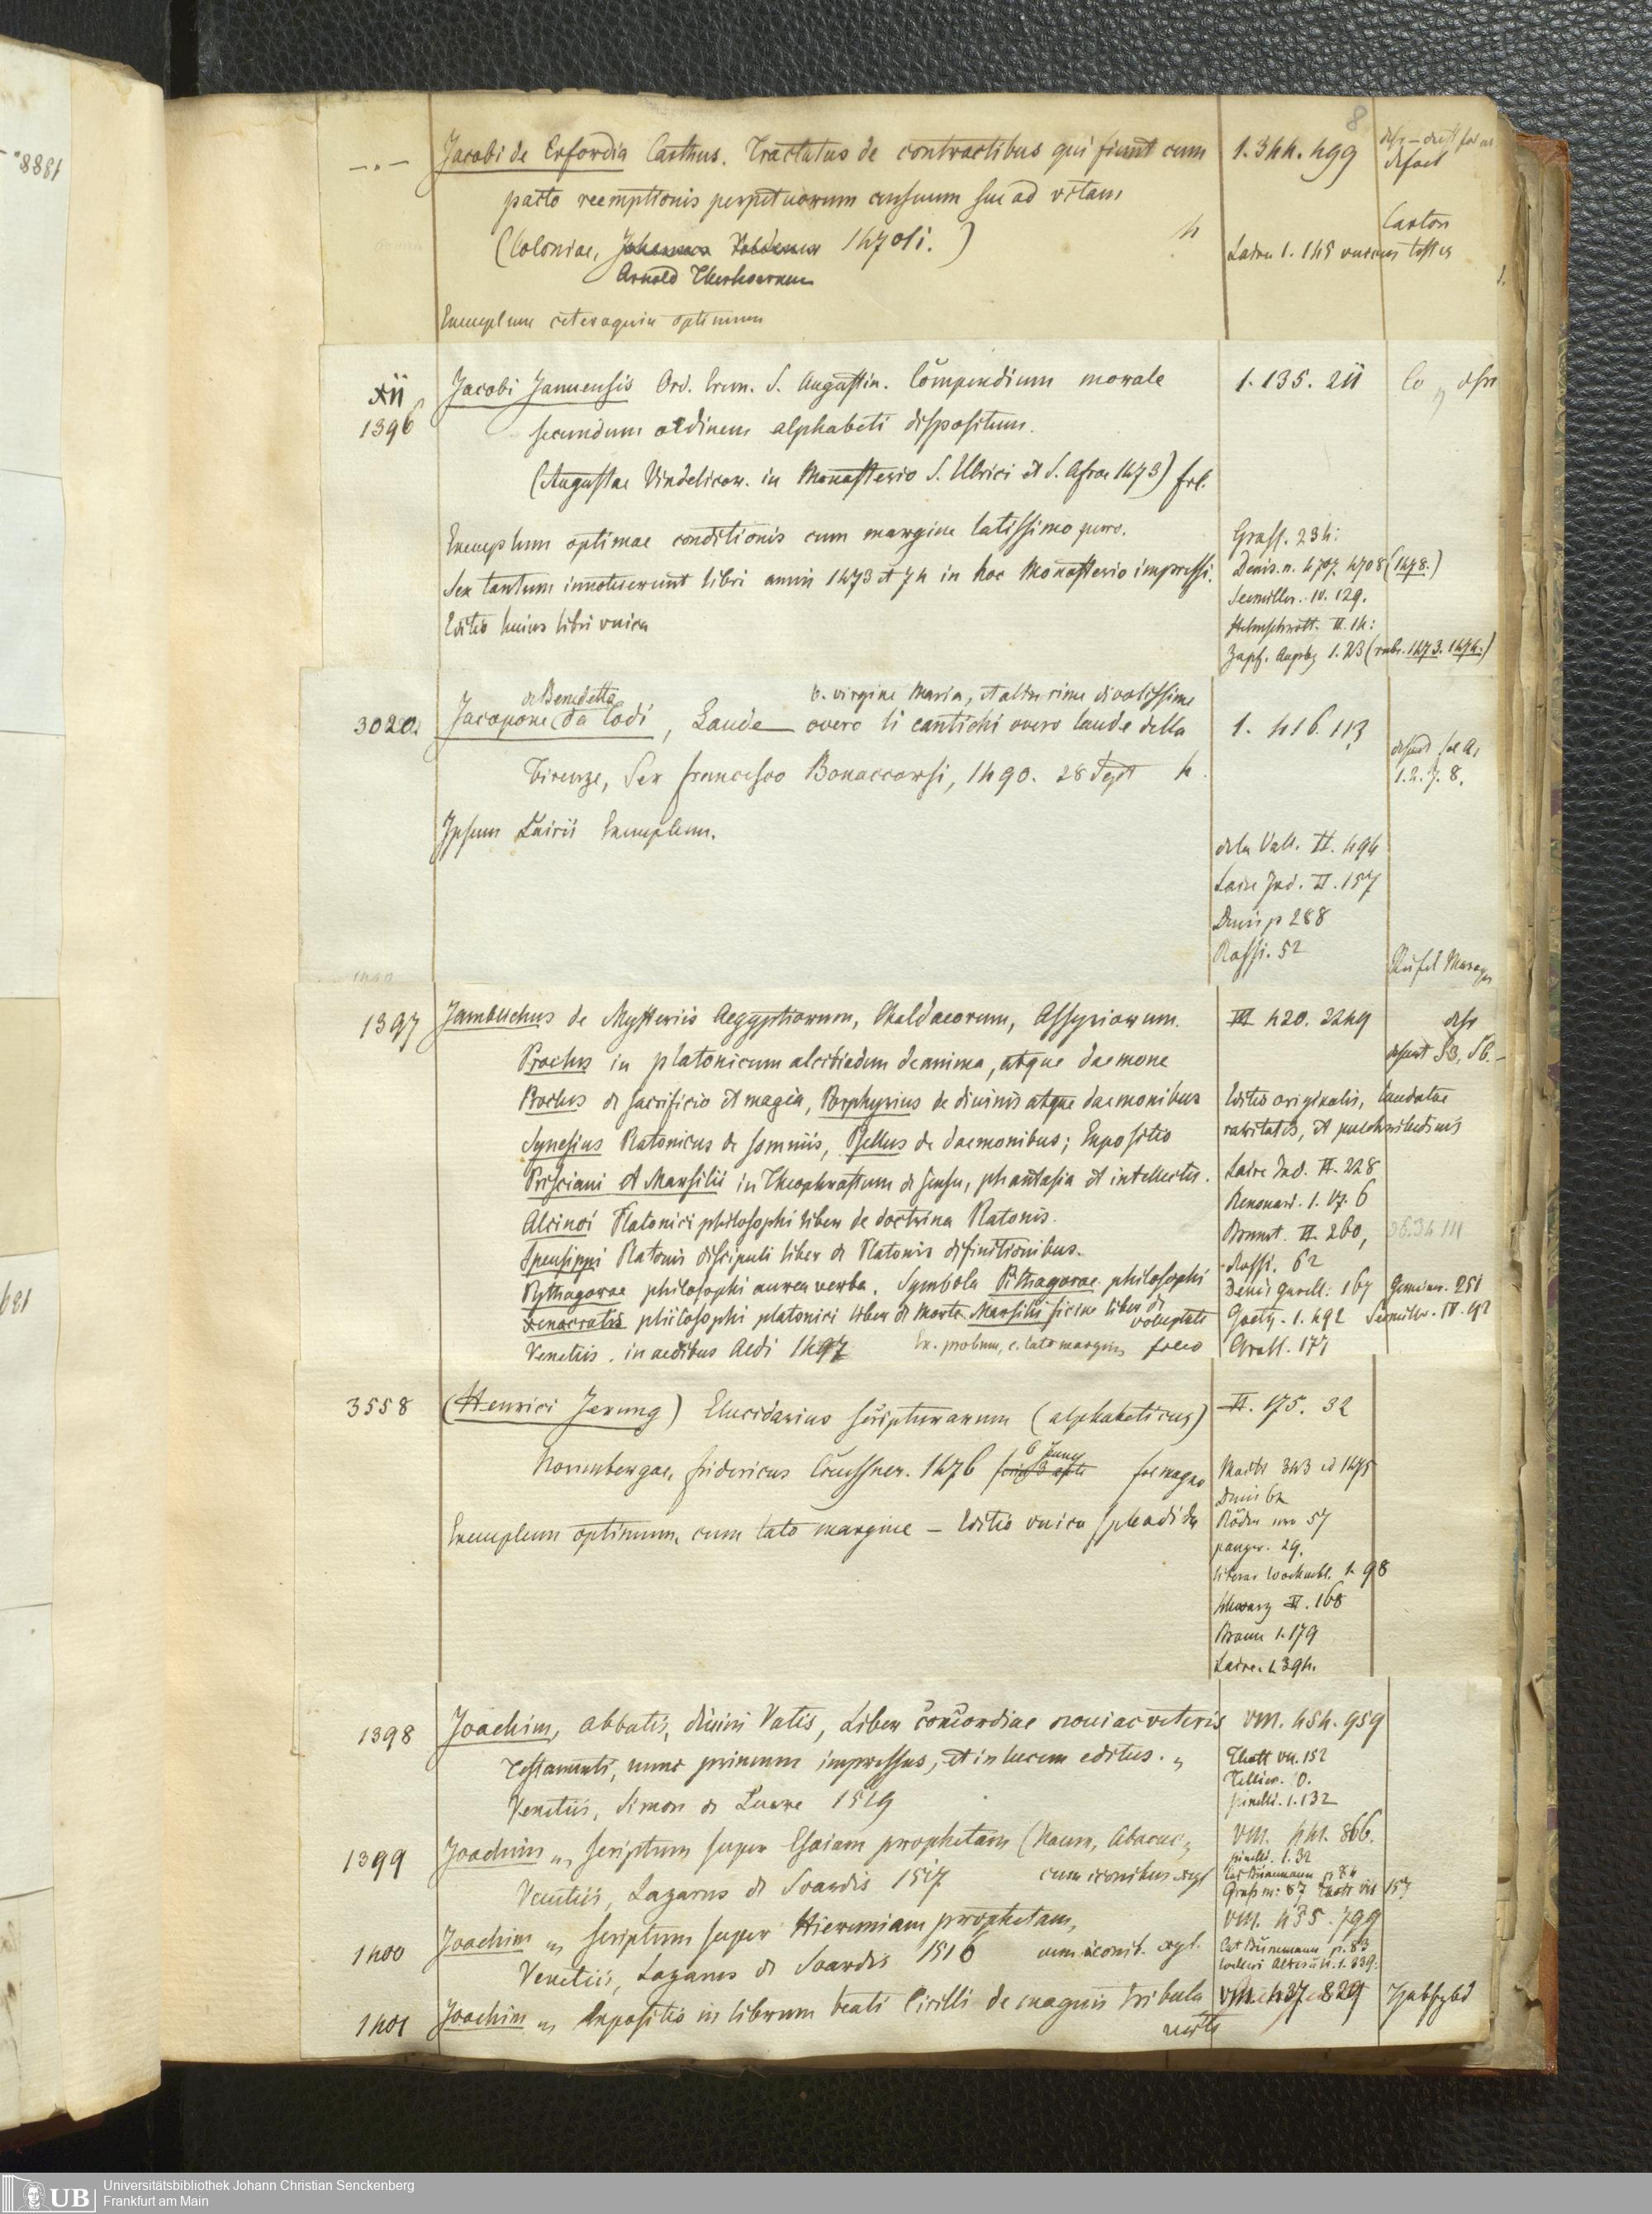 8
Jacobi de Erfordia Carthus. Tractatus de contractibus qui fiunt cum
pacto reemptionis perpetuorum censuum siue ad vitam
(Coloniae, 1470 si.) 4
Arnold Therhoernen
Exemplum ceteroquin optimum
1.344.499
defect
Carton
Laire 1.145
xii
1396
Jacobi Januensis Ord. Erem. S. Augustin. Compendium morale
secundum ordinem alphabeti dispositum.
(Augustae Vindelicor. in Monasterio S. Ulrici et S. Afrae 1473) fol.
Exemplum optimae conditionis cum margine latissimo puro.
Sex tantum innotuerunt libri annis 1473 et 74 in hoc Monasterio impressi.
Editio huius libri unica
1.135.211
Co
Grass. 234:
Denis. n. 4707. 4708 (1478.)
Seemiller. IV. 129.
Helmschrott. II. 14:
Zapf. Augsbg 1.23 (1473. 1474.)
3020.
de Benedetti
b. virgine Maria, et altre rime divotissime
Jacopone (da Todi, Laude overo li cantichi overo laude della
Firenze, Ser Francesco Bonaccorsi, 1490. 28 Sept 4.
Ipsum Lairii Exemplum.
1. 416. 113
1.2.7.8.
de la Vall. II. 494
Laire Ind. II. 157
Denis p 288
Rossi. 52
1397
Jamblichus de Mysteriis Aegyptiorum, Chaldaeorum, Assyriorum.
Proclus in platonicum alcibiadem de anima, atque daemone
Proclus de sacrificio et magia, Porphyrius de divinis atque daemonibus
Synesius Platonicus de somniis, Psellus de daemonibus; Expositio
Prisciani et Marsilii in Theophrastum de sensu, phantasia et intellectu.
Alcinoi Platonici philosophi liber de doctrina Platonis.
Speusippi Platonis discipuli liber de Platonis difinitionibus.
Pythagorae philosophi aurea verba. Symbola Pithagorae philosophi
Xenocratis philosophi platonici liber de morte Marsilii ficini liber de
voluptate
Venetiis. in aedibus Aldi 1497 Ex. probum, c. lato margine folio
III 420. 2249
desunt S3, S6.
Editio originalis, laudatae
raritatis, et pulchritudinis
Laire Ind. II. 228
Renouard. 1. 17. 6
Brunet. II. 260,
Rossi. 62
Denis Garell: 167 Gemeiner. 251
Goetz. 1. 492 Seemiller. IV. 92
Grass. 177
3558
(Henrici Jerung) Elucidarius scripturarum (alphabeticus)
6 Jung
Norembergae, fridericus Creussner. 1476 fol magno
Exemplum optimum, cum lato margine – Editio unica splendida
II. 175. 32
Maitt 343 ed 1475
Denis 62
Röder nro 57
panzer. 29.
literar Wochenbl. 1. 98
Schwarz II. 168
Braun 1.179
Laire. 1.394.
1398
Joachim, abbatis, divini Vatis, Liber concordiae noui ac veteris
Testamenti, nunc primum impressus, et in lucem editus. 4
Venetiis, Simon de Luere 1519
VIII. 454. 959
Thott VII. 152
Tellier. 10.
pinelli. 1.132
1399
Joachim " scriptum super Esaiam prophetam (Naum, Abacuc,
Venetiis, Lazarus de Soardis 1517 cum iconibus xyl
VIII. 441. 866.
pinelli. 1.32
Cat Bünemann p 84
Grass n: 87 Thott VII 157
1400
Joachim " scriptum super Hieremiam prophetam,
Venetiis, Lazarus de Soardis 1516 cum iconib. xyl.
VIII. 435. 799
Cat Bünemann p. 83
1401
Joachim " Expositio in librum beati Cirilli de magnis tribula
VIII. 437. 829
Universitätsbibliothek Johann Christian Senckenberg
Frankfurt am Main
UB